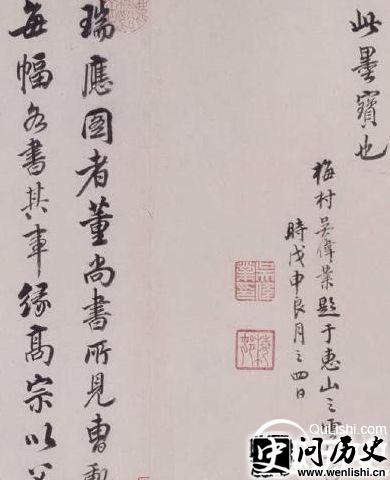 此墨寶也
梅村吳偉業題于惠山之
時戊申良月之四日
瑞應圖者董尚書所見曹勳
每幅各書其事緣高宗以
QuLishi.com
问历史
www.wenlishi.cn